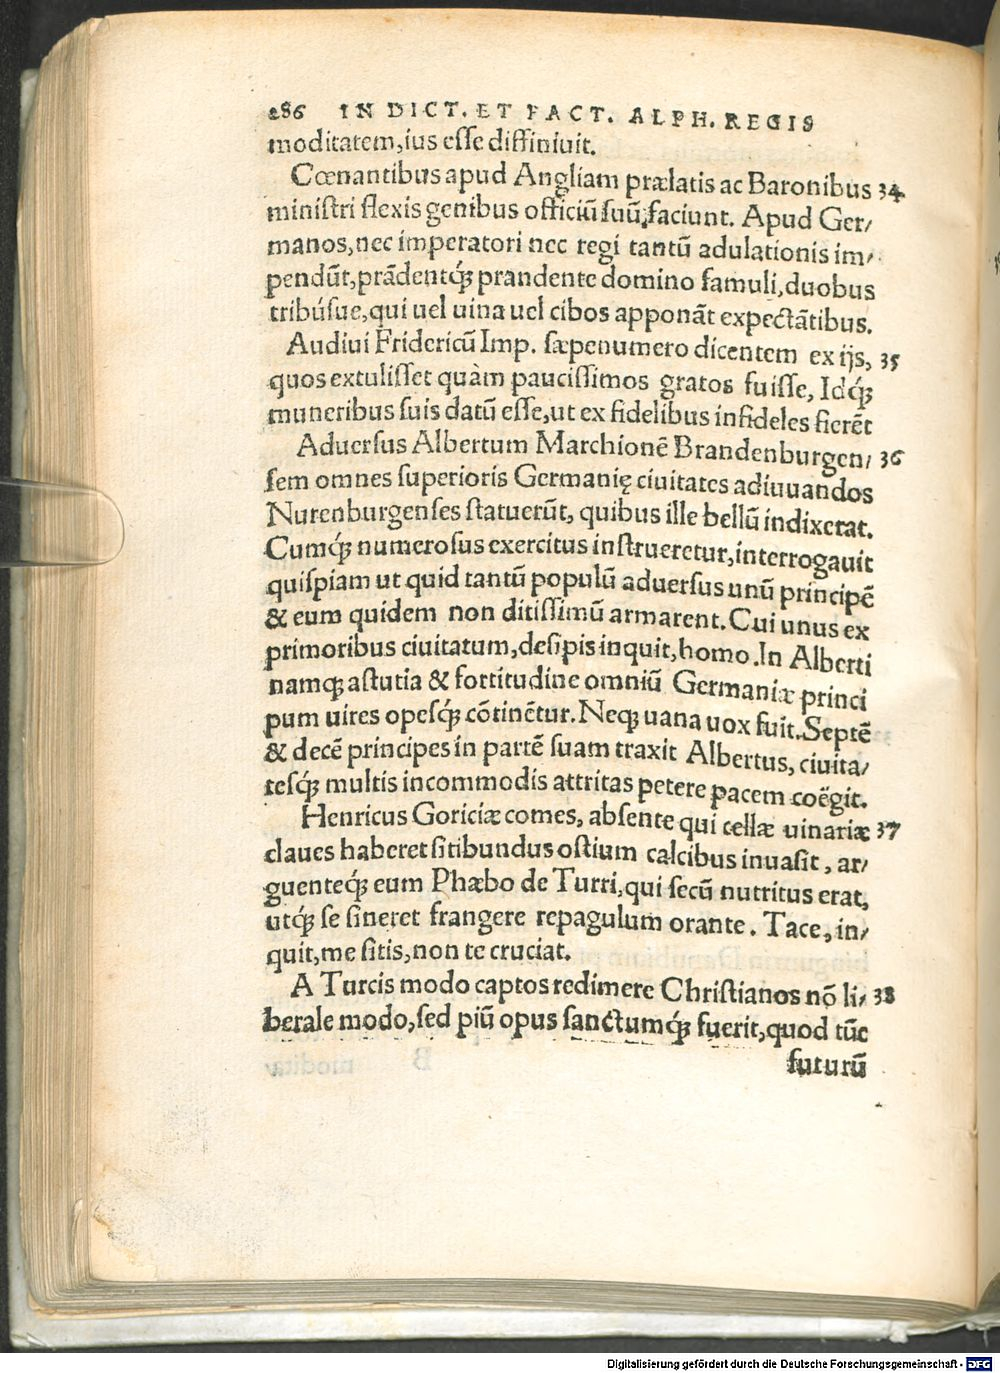 286 IN DICT. ET FACT. ALPH. REGIS
moditatem, ius esse diffiniuit.
Cœnantibus apud Angliam prælatis ac Baronibus 34
ministri flexis genibus officiũ suũ faciunt. Apud Ger/
manos, nec imperatori nec regi tantũ adulationis im/
pendũt, prãdentq́ꝫ prandente domino famuli, duobus
tribúsue, qui uel uina uel cibos apponãt expectãtibus.
Audiui Fridericũ Imp. sæpenumero dicentem ex ijs, 35
quos extulisset quàm paucissimos gratos fuisse, Idq́ꝫ
muneribus suis datũ esse, ut ex fidelibus infideles fierẽt
Aduersus Albertum Marchionẽ Brandenburgen/ 36
sem omnes superioris Germanię ciuitates adiuuandos
Nurenburgenses statuerũt, quibus ille bellũ indixerat.
Cumq́ꝫ numerosus exercitus instrueretur, interrogauit
quispiam ut quid tantũ populũ aduersus unũ principẽ
& eum quidem non ditissimũ armarent. Cui unus ex
primoribus ciuitatum, desipis inquit, homo. In Alberti
namqꝫ astutia & fortitudine omniũ Germaniæ princi
pum uires opesq́ꝫ cõtinẽtur. Neqꝫ uana uox fuit. Septẽ
& decẽ principes in partẽ suam traxit Albertus, ciuita/
tesq́ꝫ multis incommodis attritas petere pacem coëgit.
Henricus Goriciæ comes, absente qui cellæ uinariæ 37
claues haberet sitibundus ostium calcibus inuasit, ar/
guenteq́ꝫ eum Phæbo de Turri, qui secũ nutritus erat,
utq́ꝫ se sineret frangere repagulum orante. Tace, in/
quit, me sitis, non te cruciat.
A Turcis modo captos redimere Christianos nõ li/ 38
berale modo, sed piũ opus sanctumq́ꝫ fuerit, quod tũc
futurũ
Digitalisierung gefördert durch die Deutsche Forschungsgemeinschaft - DFG